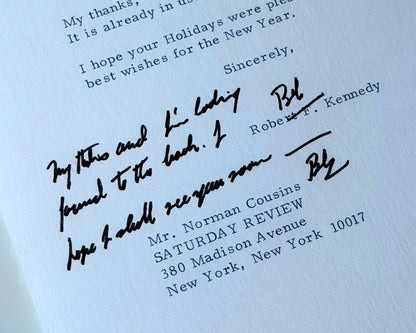 My thanks,
It is already in us
I hope your Holidays were ple
best wishes for the New Year.
Sincerely,
Bob
Robert F. Kennedy
My thanks and I'm looking
forward to the book. I
hope I shall see you soon —
Bob
Mr. Norman Cousins
SATURDAY REVIEW
380 Madison Avenue
New York, New York 10017